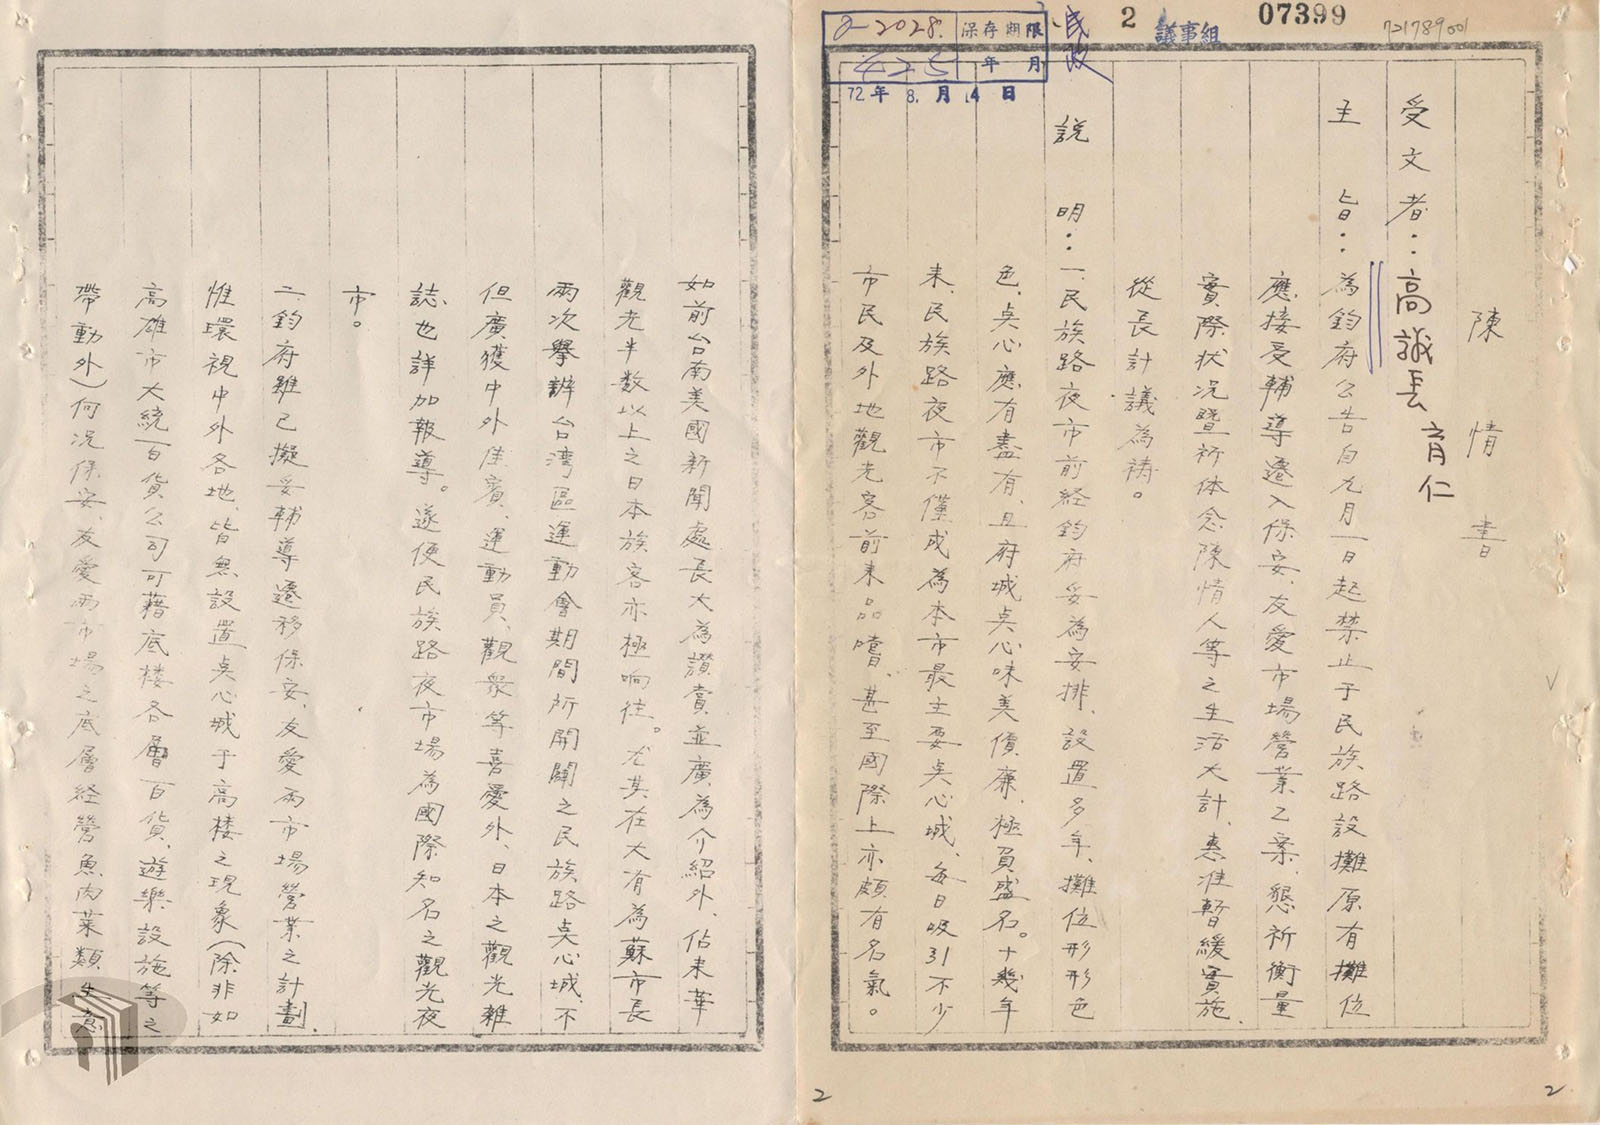 2
07399
議事組
721789001
民政
2-2028.
保存期限
425
年 月
72年8.月14日
陳情書
受文者：高議長育仁
主旨：為鈞府公告自九月一日起禁止于民族路設攤原有攤位
應接受輔導遷入保安、友愛市場營業乙案，懇祈衡量
實際狀況暨祈体念陳情人等之生活大計，惠准暫緩實施、
從長計議為禱。
說明：一、民族路夜市前経鈞府妥為安排、設置多年、攤位形形色
色，点心應有盡有，且府城点心味美價廉，極負盛名。十幾年
来、民族路夜市不僅成為本市最主要点心城、每日吸引不少
市民及外地觀光客前来品嚐、甚至國際上亦頗有名氣。
如前台南美國新聞處長大為讚賞並廣為介紹外、佔来華
觀光半数以上之日本族客亦極响往。尤其在大有為蘇市長
兩次舉辦台湾區運動會期間所開闢之民族路点心城、不
但廣獲中外佳賓、運動員、觀衆等喜愛外、日本之觀光雜
誌也詳加報導。遂使民族路夜市場為國際知名之觀光夜
市。
二、鈞府雖已擬妥輔導遷移保安、友愛兩市場營業之計劃、
惟環視中外各地、皆無設置点心城于高楼之現象(除非如
高雄市大統百貨公司可藉底楼各層百貨、遊樂設施等之
帶動外)何况保安、友愛兩市場之底層経營魚肉菜類生意
2
2